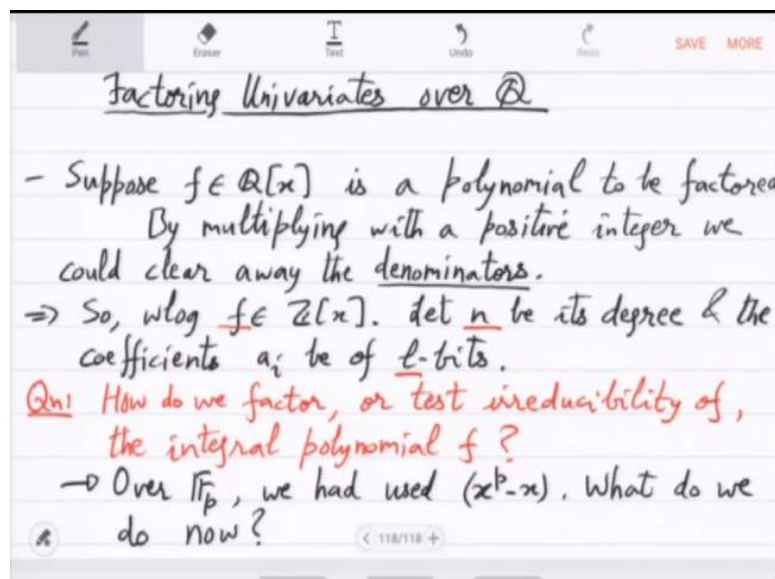 Pen Eraser Text Undo Redo SAVE MORE
Factoring Univariates over ℚ
- Suppose f ∈ ℚ[x] is a polynomial to be factored
By multiplying with a positive integer we
could clear away the denominators.
=> So, wlog f ∈ ℤ[x]. Let n be its degree & the
coefficients aᵢ be of ℓ-bits.
Qn: How do we factor, or test irreducibility of,
the integral polynomial f ?
→ Over 𝔽ₚ, we had used (xᵖ-x). What do we
do now?
< 118/118 +